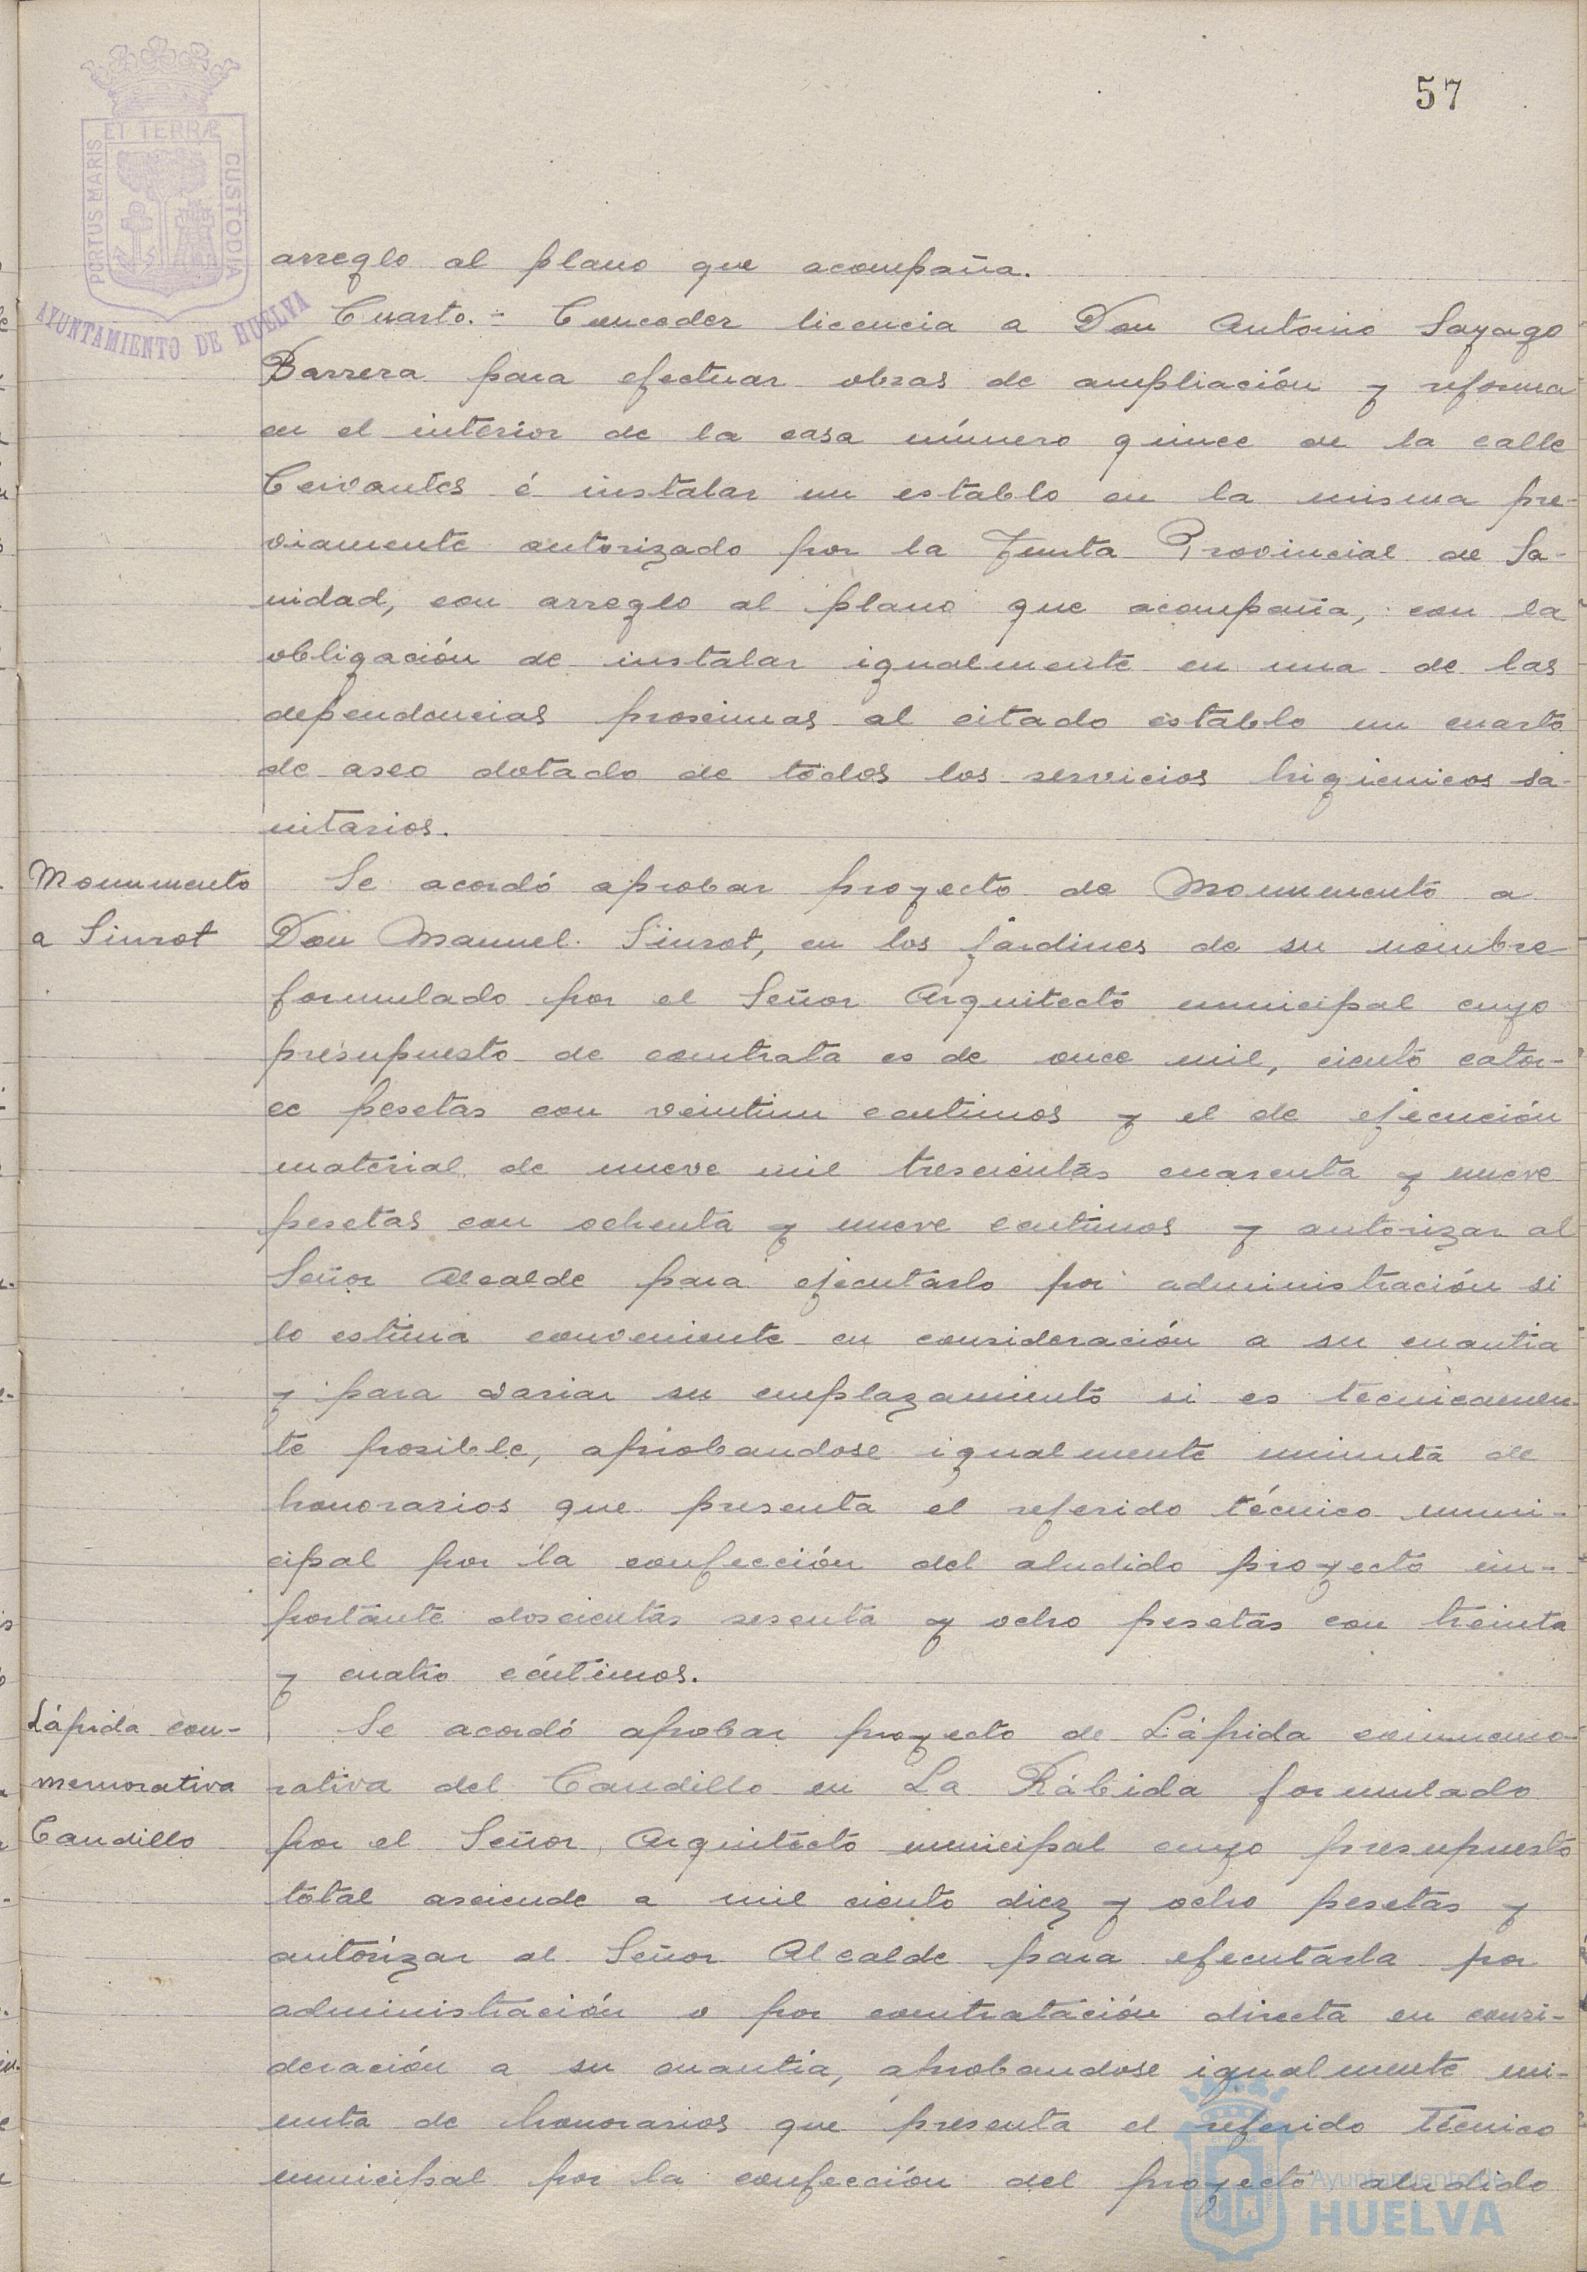 57
PORTUS MARIS ET TERRÆ CUSTODIA
AYUNTAMIENTO DE HUELVA
arreglo al plano que acompaña.
Cuarto.- Conceder licencia a Don Antonio Sayago
Barrera para efectuar obras de ampliación y reforma
en el interior de la casa número quince de la calle
Cervantes é instalar un establo en la misma pre-
viamente autorizado por la Junta Provincial de Sa-
nidad, con arreglo al plano que acompaña, con la
obligación de instalar igualmente en una de las
dependencias proximas al citado establo un cuarto
de aseo dotado de todos los servicios higienicos sa-
nitarios.
Monumento
a Siurot
Se acordó aprobar proyecto de Monumento a
Don Manuel Siurot, en los jardines de su nombre
formulado por el Señor Arquitecto municipal cuyo
presupuesto de contrata es de once mil, ciento cator-
ce pesetas con veintiun centimos y el de ejecución
material de nueve mil trescientas cuarenta y nueve
pesetas con ochenta y nueve centimos y autorizar al
Señor Alcalde para ejecutarlo por administración si
lo estima conveniente en consideración a su cuantia
y para variar su emplazamiento si es tecnicamen-
te posible, aprobandose igualmente minuta de
honorarios que presenta el referido técnico muni-
cipal por la confección del aludido proyecto im-
portante doscientas sesenta y ocho pesetas con treinta
y cuatro céntimos.
Lápida con-
memorativa
Caudillo
Se acordó aprobar proyecto de Lápida conmemo-
rativa del Caudillo en La Rábida formulado
por el Señor Arquitecto municipal cuyo presupuesto
total asciende a mil ciento diez y ocho pesetas y
autorizar al Señor Alcalde para ejecutarla por
administración o por contratación directa en consi-
deración a su cuantía, aprobandose igualmente mi-
nuta de honorarios que presenta el referido Técnico
municipal por la confección del proyecto aludido
Ayuntamiento de
HUELVA